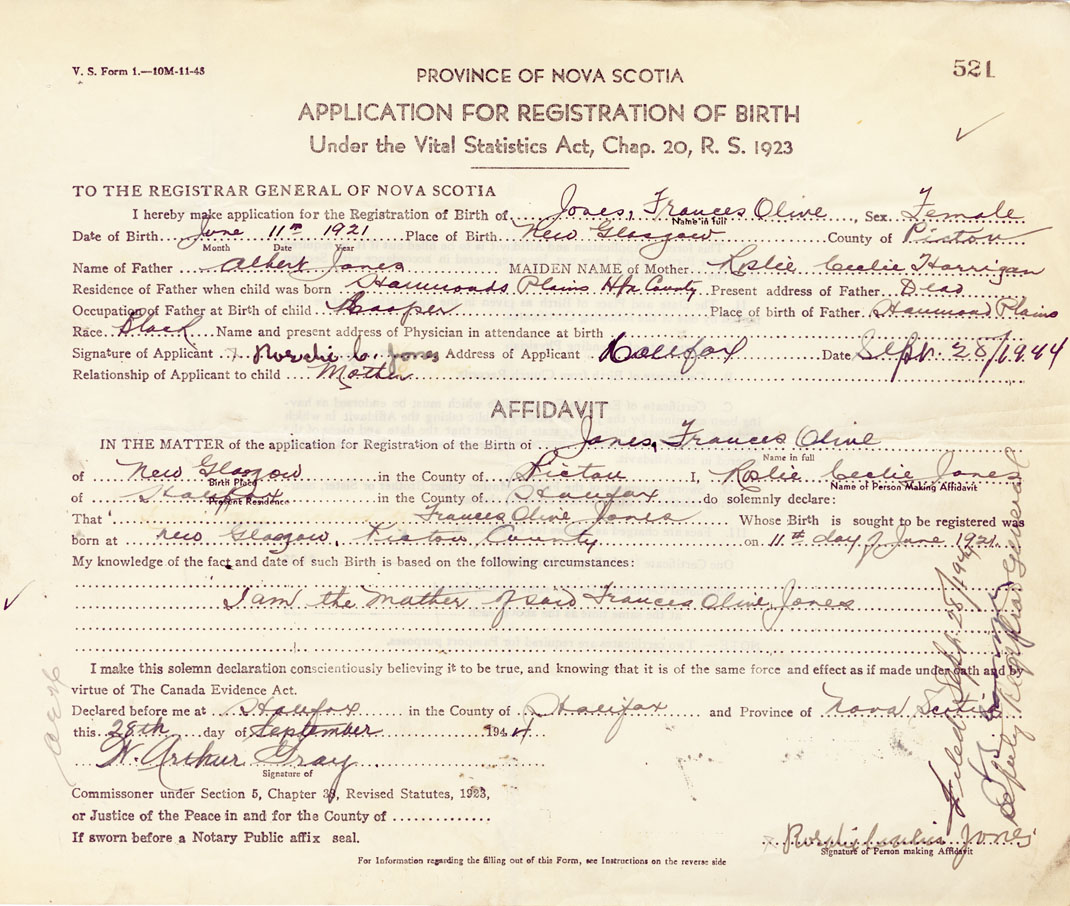 V. S. Form 1.—10M-11-43
PROVINCE OF NOVA SCOTIA
521
APPLICATION FOR REGISTRATION OF BIRTH
Under the Vital Statistics Act, Chap. 20, R. S. 1923
TO THE REGISTRAR GENERAL OF NOVA SCOTIA
I hereby make application for the Registration of Birth of Jones, Frances Olive, Sex Female
Name in full
Date of Birth June 11th 1921 Place of Birth New Glasgow County of Pictou
Month Date Year
Name of Father Albert Jones MAIDEN NAME of Mother Roslie Cecilie Harrigan
Residence of Father when child was born Hammonds Plains Hfx County Present address of Father Dead
Occupation of Father at Birth of child Cooper Place of birth of Father Hammond Plains
Race Black Name and present address of Physician in attendance at birth
Signature of Applicant Rosalie C. Jones Address of Applicant Halifax Date Sept. 28/1944
Relationship of Applicant to child Mother
AFFIDAVIT
IN THE MATTER of the application for Registration of the Birth of Jones, Frances Olive
Name in full
of New Glasgow in the County of Pictou I, Roslie Cecilie Jones
Birth Place Name of Person Making Affidavit
of Halifax in the County of Halifax do solemnly declare:
Present Residence
That Frances Olive Jones Whose Birth is sought to be registered was
born at New Glasgow, Pictou County on 11th day of June 1921
My knowledge of the fact and date of such Birth is based on the following circumstances:
I am the Mother of said Frances Olive Jones
I make this solemn declaration conscientiously believing it to be true, and knowing that it is of the same force and effect as if made under oath and by
virtue of The Canada Evidence Act.
Declared before me at Halifax in the County of Halifax and Province of Nova Scotia
this 28th day of September 1944
W. Arthur Gray
Signature of
Commissoner under Section 5, Chapter 38, Revised Statutes, 1923,
or Justice of the Peace in and for the County of
If sworn before a Notary Public affix seal.
Jones
Signature of Person making Affidavit
For Information regarding the filling out of this Form, see Instructions on the reverse side
Filed Sept. 28/1944
Deputy Registrar General